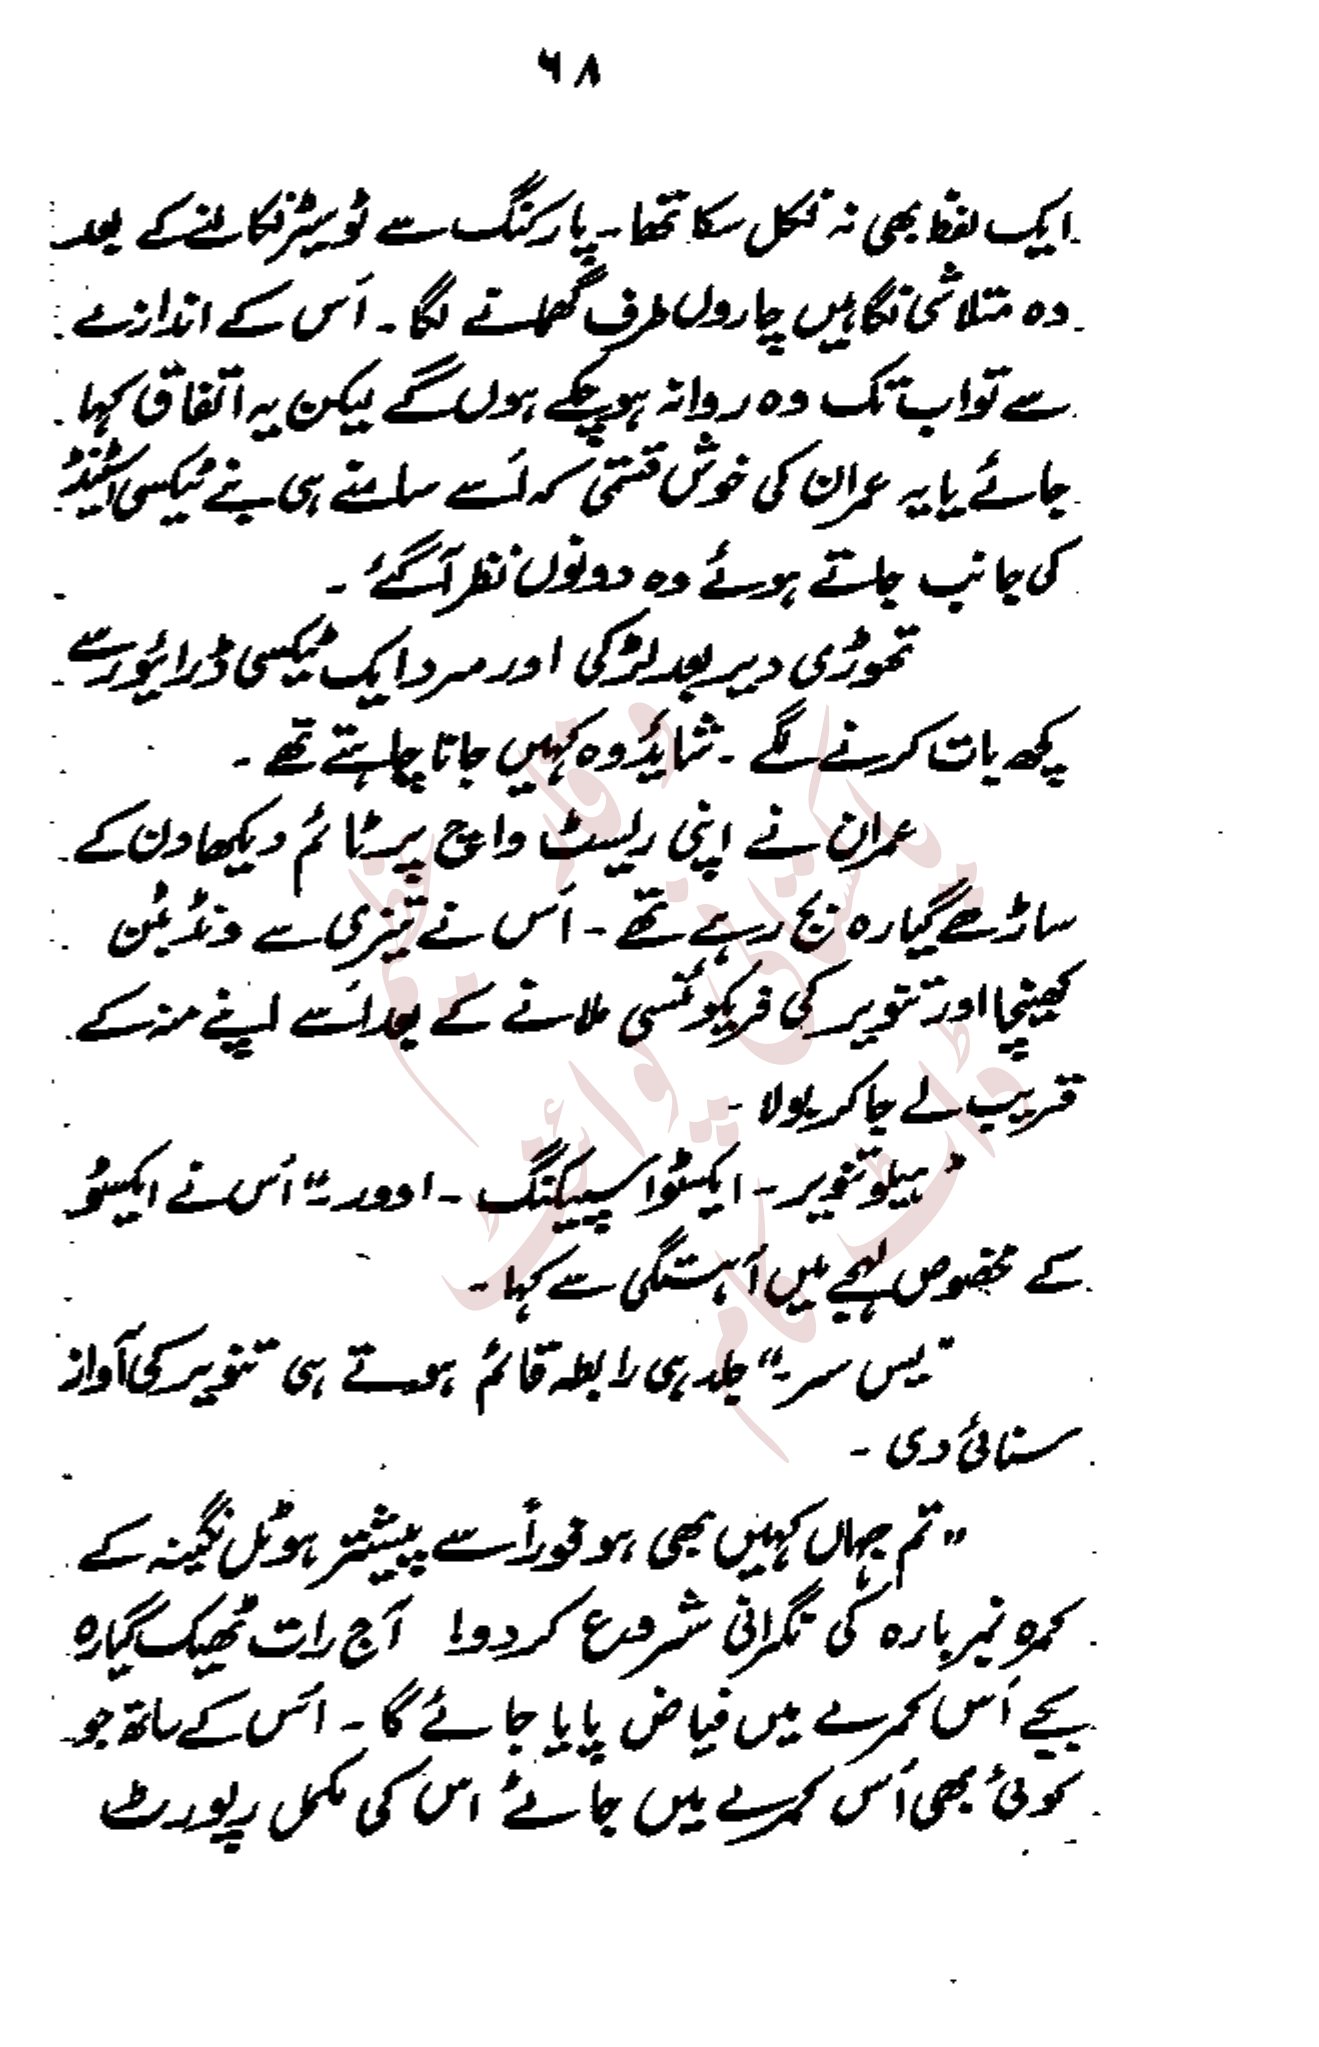 ۶۸
ایک لفظ بھی نہ نکل سکا تھا۔ پارکنگ سے ٹوسیٹر نکالنے کے بعد
وہ متلاشی نگاہیں چاروں طرف گھمانے لگا۔ اُس کے اندازے
سے تو اب تک وہ روانہ ہو چکے ہوں گے لیکن یہ اتفاق کہا
جائے یا یہ عمران کی خوش قسمتی کہ اُسے سامنے ہی بنے ٹیکسی اسٹینڈ
کی جانب جاتے ہوئے وہ دونوں نظر آ گئے۔
تھوڑی دیر بعد لڑکی اور مرد ایک ٹیکسی ڈرائیور سے
کچھ بات کرنے لگے۔ شاید وہ کہیں جانا چاہتے تھے۔
عمران نے اپنی ریسٹ واچ پر ٹائم دیکھا دن کے
ساڑھے گیارہ بج رہے تھے۔ اُس نے تیزی سے ونڈ بٹن
کھینچا اور تنویر کی فریکوئنسی ملانے کے بعد اُسے اپنے منہ کے
قریب لے جا کر بولا۔
"ہیلو تنویر۔ ایکسٹو اسپیکنگ۔ اوور۔" اُس نے ایکسٹو
کے مخصوص لہجے میں آہستگی سے کہا۔
"یس سر۔" جلد ہی رابطہ قائم ہوتے ہی تنویر کی آواز
سنائی دی۔
"تم جہاں کہیں بھی ہو فوراً سے پیشتر ہوٹل نگینہ کے
کمرہ نمبر بارہ کی نگرانی شروع کر دو! آج رات ٹھیک گیارہ
بجے اُس کمرے میں فیاض پایا جائے گا۔ اُس کے ساتھ جو
کوئی بھی اُس کمرے میں جائے اس کی مکمل رپورٹ
پاکستانی پوائنٹ
ڈاٹ کام